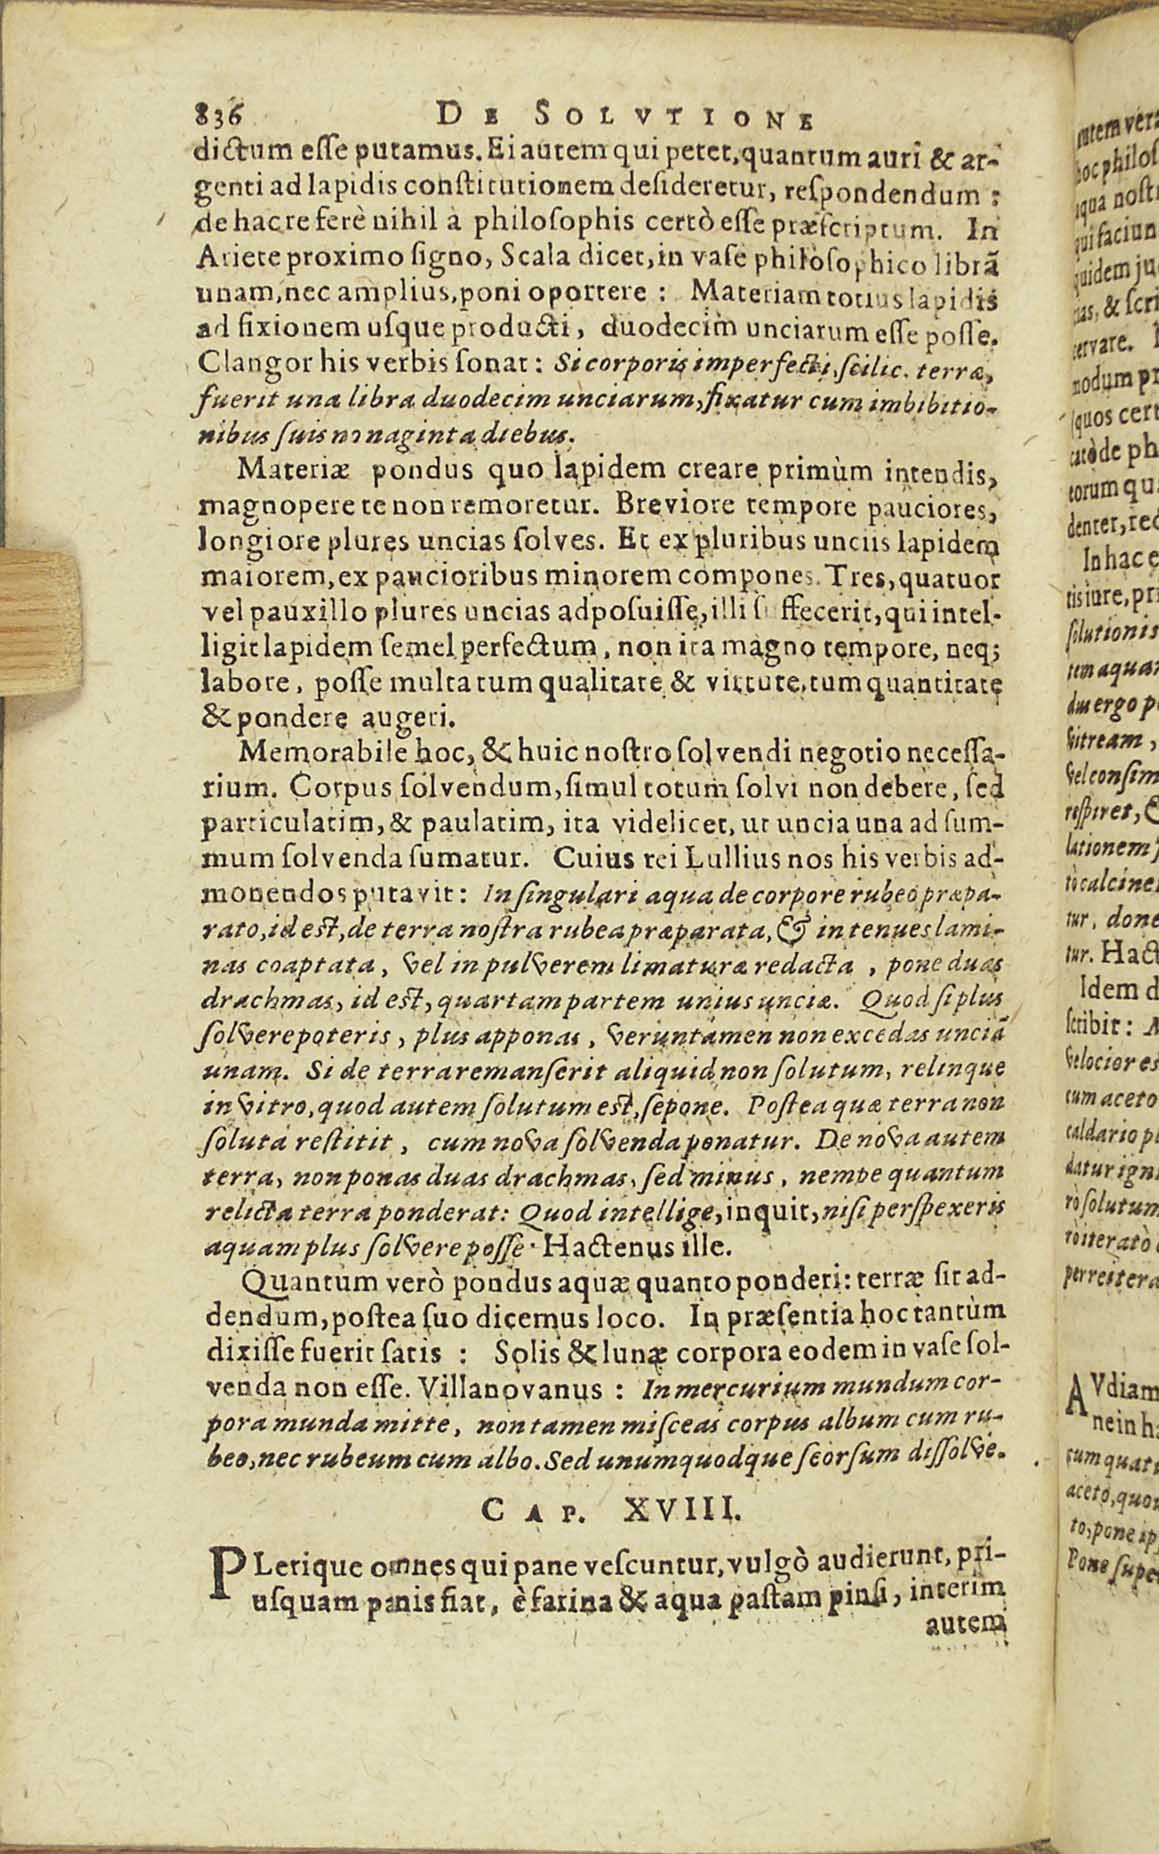 836 DE SOLVTIONE
dictum eſſe putamus. Ei autem qui petet, quantum auri & ar-
genti ad lapidis conſtitutionem deſideretur, reſpondendum:
de hac re ferè nihil à philoſophis certò eſſe præſcriptum. In
Ariete proximo ſigno, Scala dicet, in vaſe philoſophico librā
unam, nec amplius, poni oportere: Materiam totius lapidis
ad fixionem uſque producti, duodecim unciarum eſſe poſſe.
Clangor his verbis ſonat: Si corporis imperfecti, ſcilic. terræ,
fuerit una libra duodecim unciarum, fixatur cum imbibitio-
nibus ſuis nonaginta diebus.
Materiæ pondus quo lapidem creare primùm intendis,
magnopere te non remoretur. Breviore tempore pauciores,
longiore plures uncias ſolves. Et ex pluribus unciis lapidem
maiorem, ex paucioribus minorem compones. Tres, quatuor
vel pauxillo plures uncias adpoſuiſſe, illi ſuffecerit, qui intel-
ligit lapidem ſemel perfectum, non ita magno tempore, neq;
labore, poſſe multa tum qualitate & virtute, tum quantitate
& pondere augeri.
Memorabile hoc, & huic noſtro ſolvendi negotio neceſſa-
rium. Corpus ſolvendum, ſimul totum ſolvi non debere, ſed
particulatim, & paulatim, ita videlicet, ut uncia una ad ſum-
mum ſolvenda ſumatur. Cuius rei Lullius nos his verbis ad-
monendos putavit: In ſingulari aqua de corpore rubeo præpa-
rato, id eſt, de terra noſtra rubea præparata, & in tenues lami-
nas coaptata, vel in pulverem limaturæ redacta, pone duas
drachmas, id eſt, quartam partem unius unciæ. Quod ſi plus
ſolvere poteris, plus apponas, veruntamen non excedas unciā
unam. Si de terra remanſerit aliquid non ſolutum, relinque
in vitro, quod autem ſolutum eſt, ſepone. Poſtea quæ terra non
ſoluta reſtitit, cum nova ſolvenda ponatur. De nova autem
terra, non ponas duas drachmas, ſed minus, nempe quantum
relicta terra ponderat: Quod intellige, inquit, niſi perſpexeris
aquam plus ſolvere poſſe. Hactenus ille.
Quantum verò pondus aquæ quanto ponderi: terræ ſit ad-
dendum, poſtea ſuo dicemus loco. In præſentia hoc tantùm
dixiſſe fuerit ſatis: Solis & lunæ corpora eodem in vaſe ſol-
venda non eſſe. Villanovanus: In mercurium mundum cor-
pora munda mitte, non tamen miſceas corpus album cum ru-
beo, nec rubeum cum albo. Sed unumquodque ſeorſum diſſolve.
CAP. XVIII.
PLerique omnes qui pane veſcuntur, vulgò audierunt, pri-
uſquam panis fiat, è farina & aqua paſtam pinſi, interim
autem
autem
hoc philoſ
aqua noſt
qui faciun
quidem
& ſcri
ſervare.
modum pr
quos cert
de ph
torum qu
denter, rec
In hac e
tis iure, pr
ſolutionis
tem aquam
dui ergo p
vitream,
vel conſim
reſpiret, &
lationem
tò calcine
tur, done
tur. Hact
Idem d
ſcribit:
velocior es
cum aceto
caldario p
datur igni
rò ſolutum
rò iteratò
per reitera
AVdiam
ne in h
cum quat
aceto, quo
to, pone ip
Pone ſuper